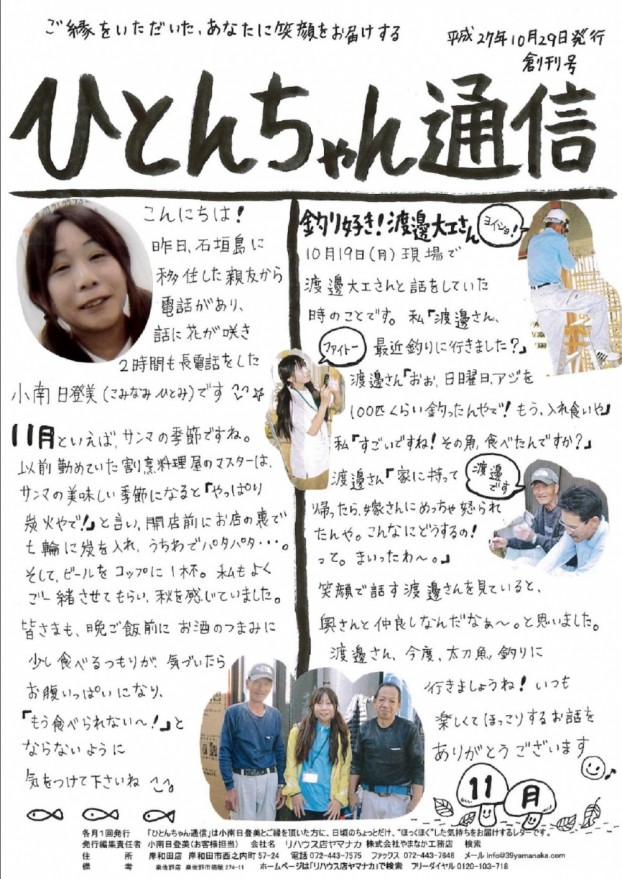 ご縁をいただいた、あなたに笑顔をお届けする
平成27年10月29日発行
創刊号
ひとんちゃん通信
こんにちは!
昨日、石垣島に
移住した親友から
電話があり、
話に花が咲き
2時間も長電話をした
小南 日登美(こみなみ ひとみ)です
11月といえば、サンマの季節ですね。
以前勤めていた割烹料理屋のマスターは、
サンマの美味しい季節になると「やっぱり
炭火やで!」と言い、開店前にお店の裏で
七輪に炭を入れ、うちわでパタパタ・・・。
そして、ビールをコップに1杯。私もよく
ご一緒させてもらい、秋を感じていました。
皆さまも、晩ご飯前に お酒のつまみに
少し食べるつもりが、気づいたら
お腹いっぱいになり、
「もう食べられない〜!」と
ならないように
気をつけて下さいね
釣り好き!渡邊大工さん
ヨイショ!
10月19日(月) 現場で
渡邊大工さんと話をしていた
時のことです。私「渡邊さん、
最近釣りに行きました?」
ファイトー
渡邊さん「おぉ、日曜日、アジを
100匹くらい釣ったんやで!もう、入れ食いや」
私「すごいですね!その魚、食べたんですか?」
渡邊さん「家に持って
渡邊です
帰ったら、嫁さんにめっちゃ怒られ
たんや。こんなにどうするの!
って。まいったわ〜。」
笑顔で話す渡邊さんを見ていると、
奥さんと仲良しなんだなぁ〜。と思いました。
渡邊さん、今度、太刀魚釣りに
行きましょうね!いつも
楽しくてほっこりするお話を
ありがとうございます
11月
各月1回発行 「ひとんちゃん通信」は小南日登美とご縁を頂いた方に、日頃のちょっとだけ、"ほっほぐ"した気持ちをお届けするレターです。
発行編集責任者 小南日登美(お客様担当) 会社名 リハウス店ヤマナカ 株式会社やまなか工務店 検索
住 所 岸和田店 岸和田市西之内町57-24 電話 072-443-7575 ファックス 072-443-7646 メール info@39yamanaka.com
備 考 泉佐野店 泉佐野市鶴原 274-11 ホームページは「リハウス店ヤマナカ」で検索 フリーダイヤル 0120-103-718